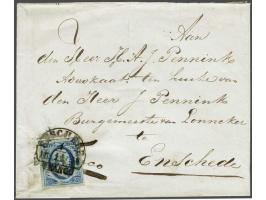 Aan
den Heer H. A. J. Pennink
Advokaat ten huize van
den Heer J Pennink
Burgemeester van Lonneker
te
Enschede